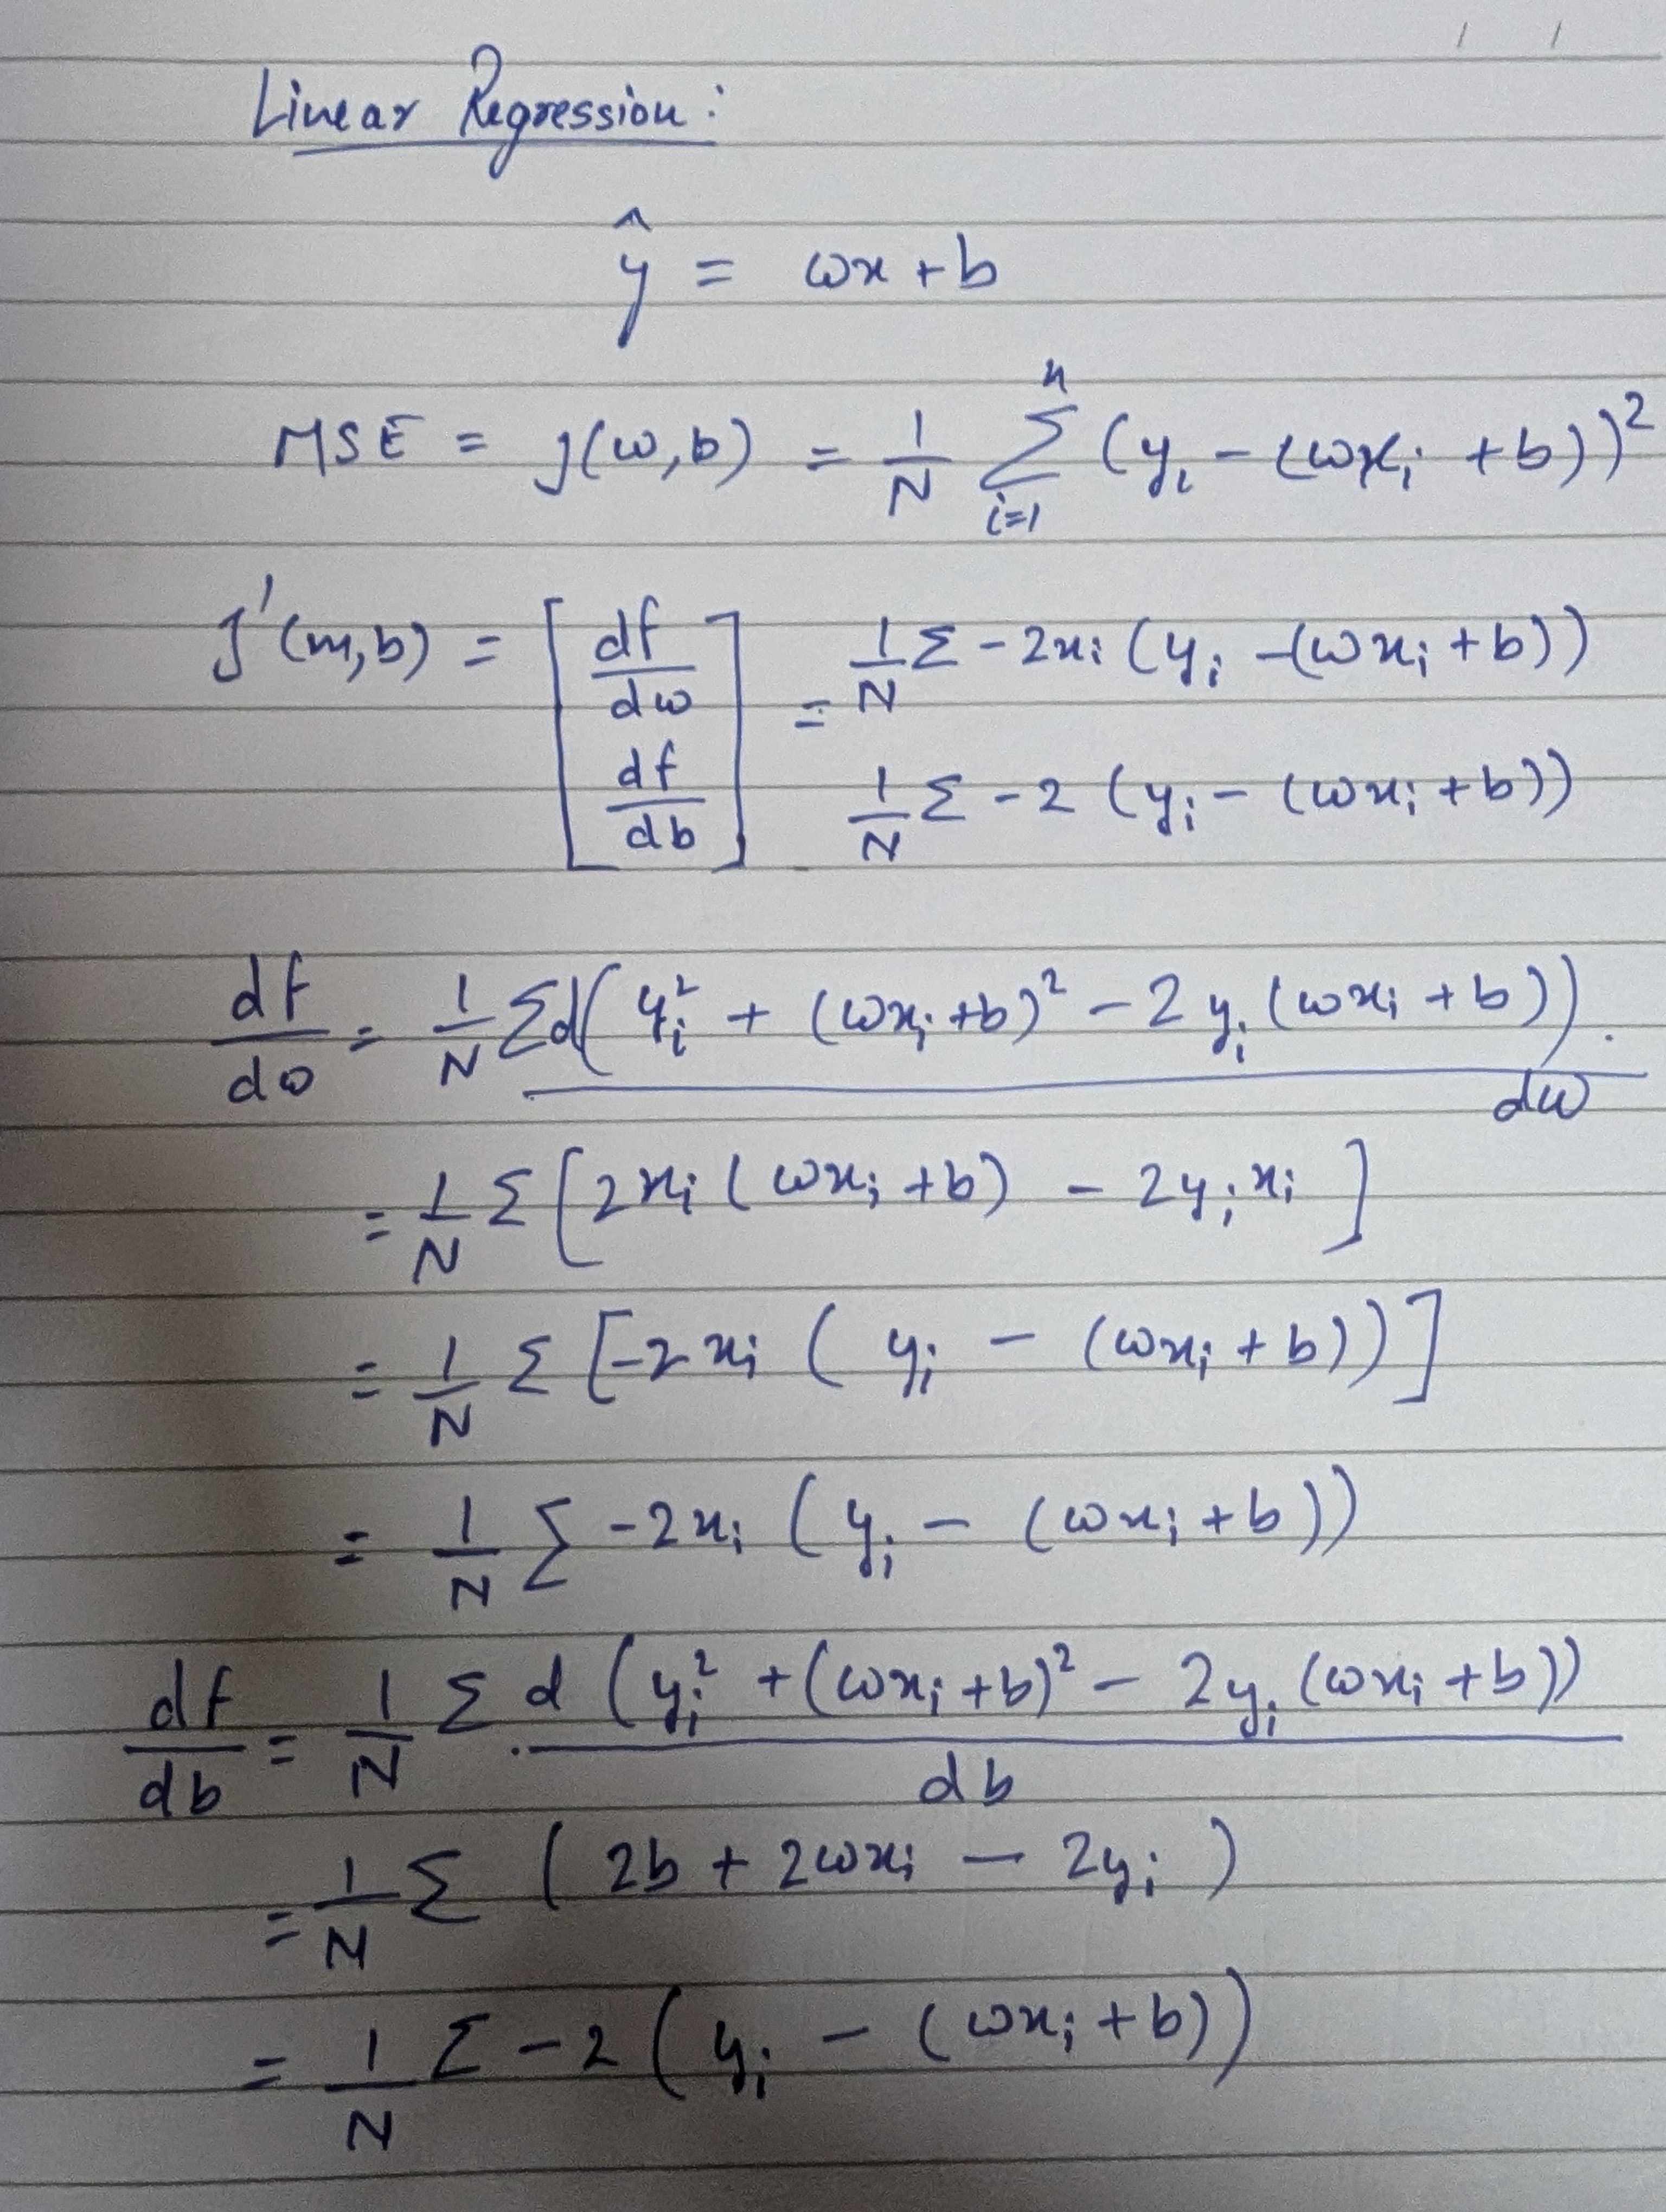 Linear Regression:
ŷ = wx + b
MSE = J(w,b) = 1/N Σ_{i=1}^{n} (y_i - (wx_i + b))²
J'(m,b) = [df/dw df/db] = 1/N Σ -2x_i (y_i - (wx_i + b))
1/N Σ -2 (y_i - (wx_i + b))
df/dw = 1/N Σ d( y_i² + (wx_i + b)² - 2y_i (wx_i + b)) / dw
= 1/N Σ [2x_i (wx_i + b) - 2y_i x_i ]
= 1/N Σ [-2x_i ( y_i - (wx_i + b))]
= 1/N Σ -2x_i (y_i - (wx_i + b))
df/db = 1/N Σ d (y_i² + (wx_i + b)² - 2y_i (wx_i + b)) / db
= 1/N Σ ( 2b + 2wx_i - 2y_i )
= 1/N Σ -2 ( y_i - (wx_i + b))